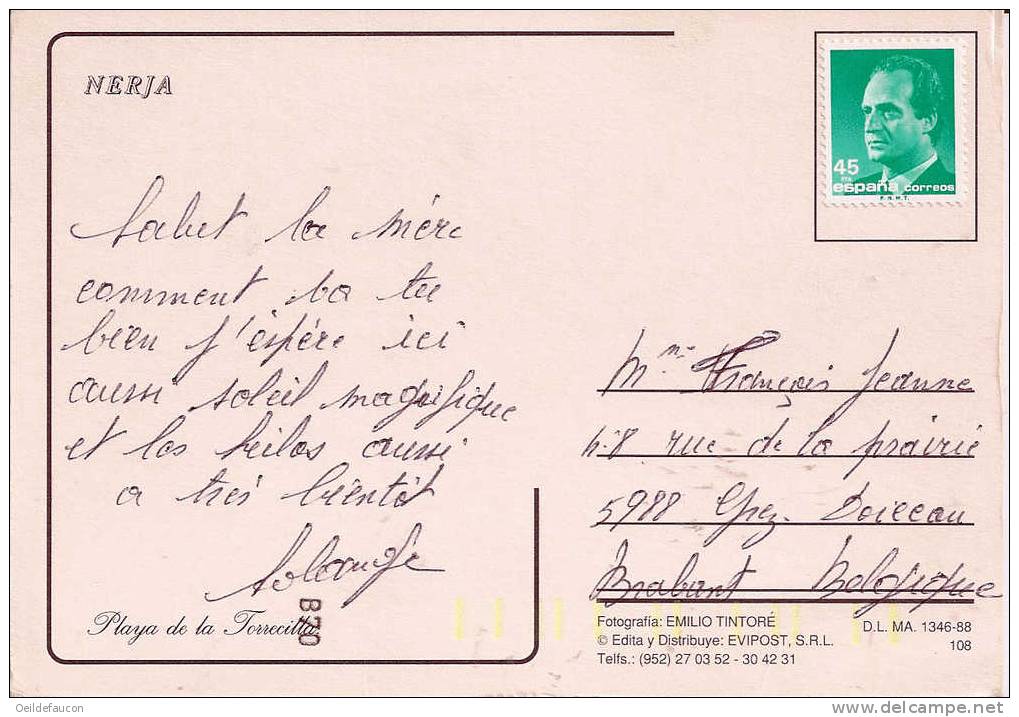 NERJA
45
PTA
españa correos
F.N.M.T.
Salut la mère
comment va tu
bien j'éspére ici
aussi soleil magnifique
et les kilos aussi
a tres bientôt
Solange
Mme François Jeanne
rue de la prairie
5988 Grez. Doiceau
Brabant Belgique
Playa de la Torrecilla
B70
Fotografía: EMILIO TINTORÉ
© Edita y Distribuye: EVIPOST, S.R.L.
Telfs.: (952) 27 03 52 - 30 42 31
D.L. MA. 1346-88
108
Oeildefaucon
www.delcampe.net